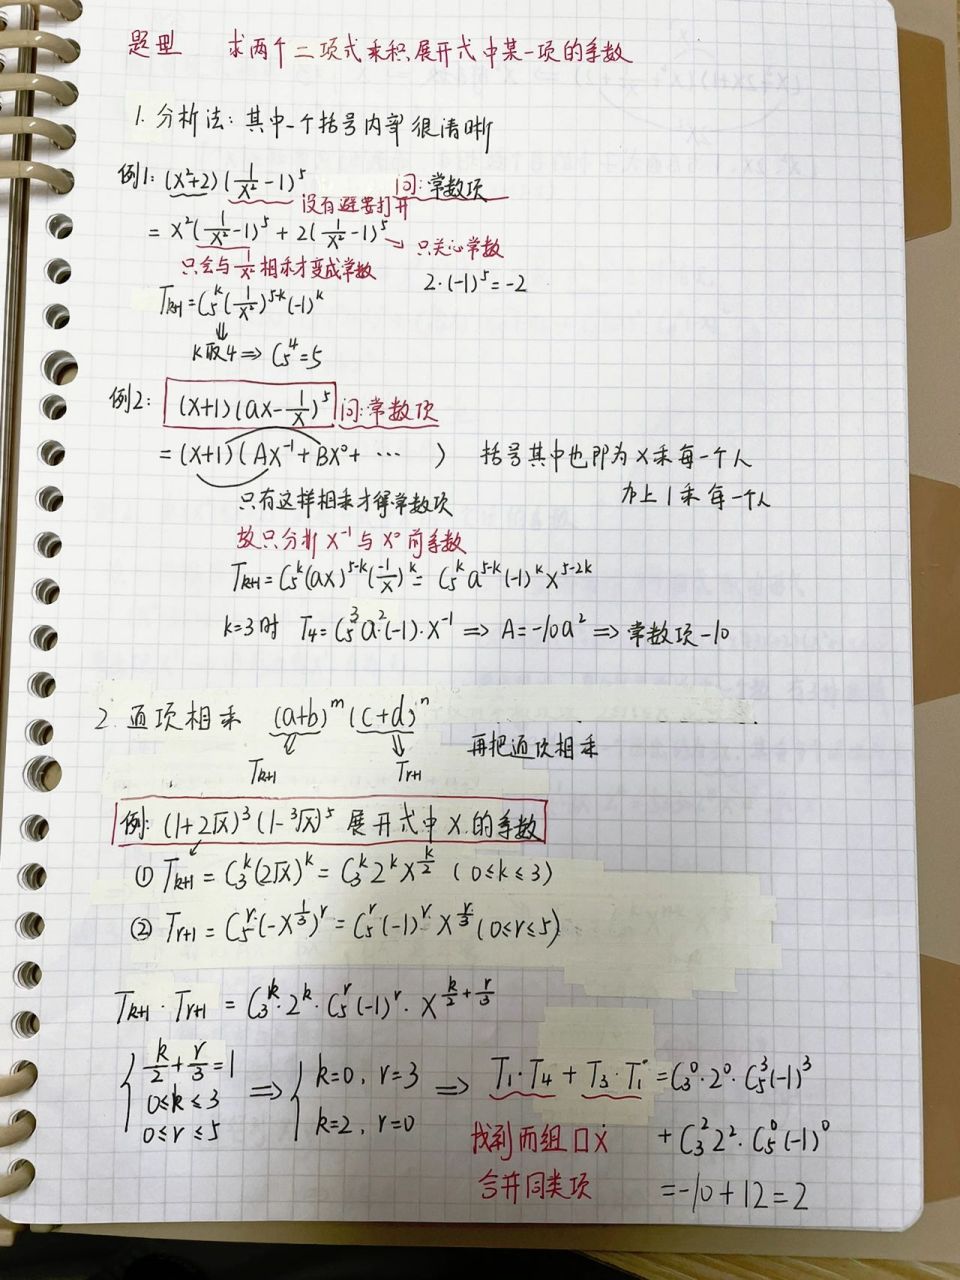 题型 求两个二项式乘积展开式中某一项的系数
1. 分析法: 其中一个括号内容很清晰
例1: (x²+2)(1/x²-1)⁵ 问: 常数项
没有避要打开
= x²(1/x²-1)⁵ + 2(1/x²-1)⁵ → 只关心常数
只会与1/x²相乘才变成常数 2·(-1)⁵=-2
Tk+1=C₅ᵏ(1/x²)⁵⁻ᵏ(-1)ᵏ
⇓
k取4 ⇒ C₅⁴=5
例2: (x+1)(ax-1/x)⁵ 问:常数项
=(x+1)(Ax⁻¹+Bx⁰+ ··· ) 括号其中也即为x乘每一个人
加上1乘每一个人
只有这样相乘才得常数项
故只分析x⁻¹与x⁰前系数
Tk+1=C₅ᵏ(ax)⁵⁻ᵏ(-1/x)ᵏ= C₅ᵏa⁵⁻ᵏ(-1)ᵏx⁵⁻²ᵏ
k=3时 T₄=C₅³a²(-1)·x⁻¹ ⇒ A=-10a² ⇒ 常数项-10
2. 通项相乘 (a+b)ᵐ(c+d)ⁿ
再把通项相乘
Tk+1 Tr+1
例: (1+2√x)³(1-³√x)⁵ 展开式中x的系数
① Tk+1 = C₃ᵏ(2√x)ᵏ = C₃ᵏ2ᵏx^(k/2) (0≤k≤3)
② Tr+1 = C₅ʳ(-x^(1/3))ʳ = C₅ʳ(-1)ʳx^(r/3) (0≤r≤5)
Tk+1·Tr+1 = C₃ᵏ·2ᵏ·C₅ʳ(-1)ʳ·x^(k/2+r/3)
{ k/2+r/3=1 ⇒ { k=0, r=3 ⇒ T₁·T₄ + T₃·T₁ =C₃⁰·2⁰·C₅³(-1)³
0≤k≤3
0≤r≤5 k=2, r=0 找到两组 x +C₃²2²·C₅⁰(-1)⁰
合并同类项 =-10+12=2